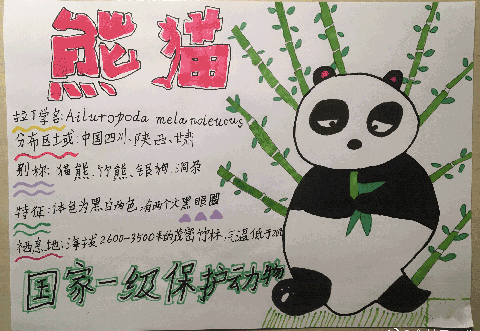 熊猫
拉丁学名:Ailuropoda melanoleucus
分布区土或:中国四川、陕西、甘肃
别称:猫熊、竹熊、银狗、洞尕
特征:体色为黑白两色,有两个大黑眼圈
栖息地:海拔2600-3500米的茂密竹林,气温低于20
国家一级保护动物